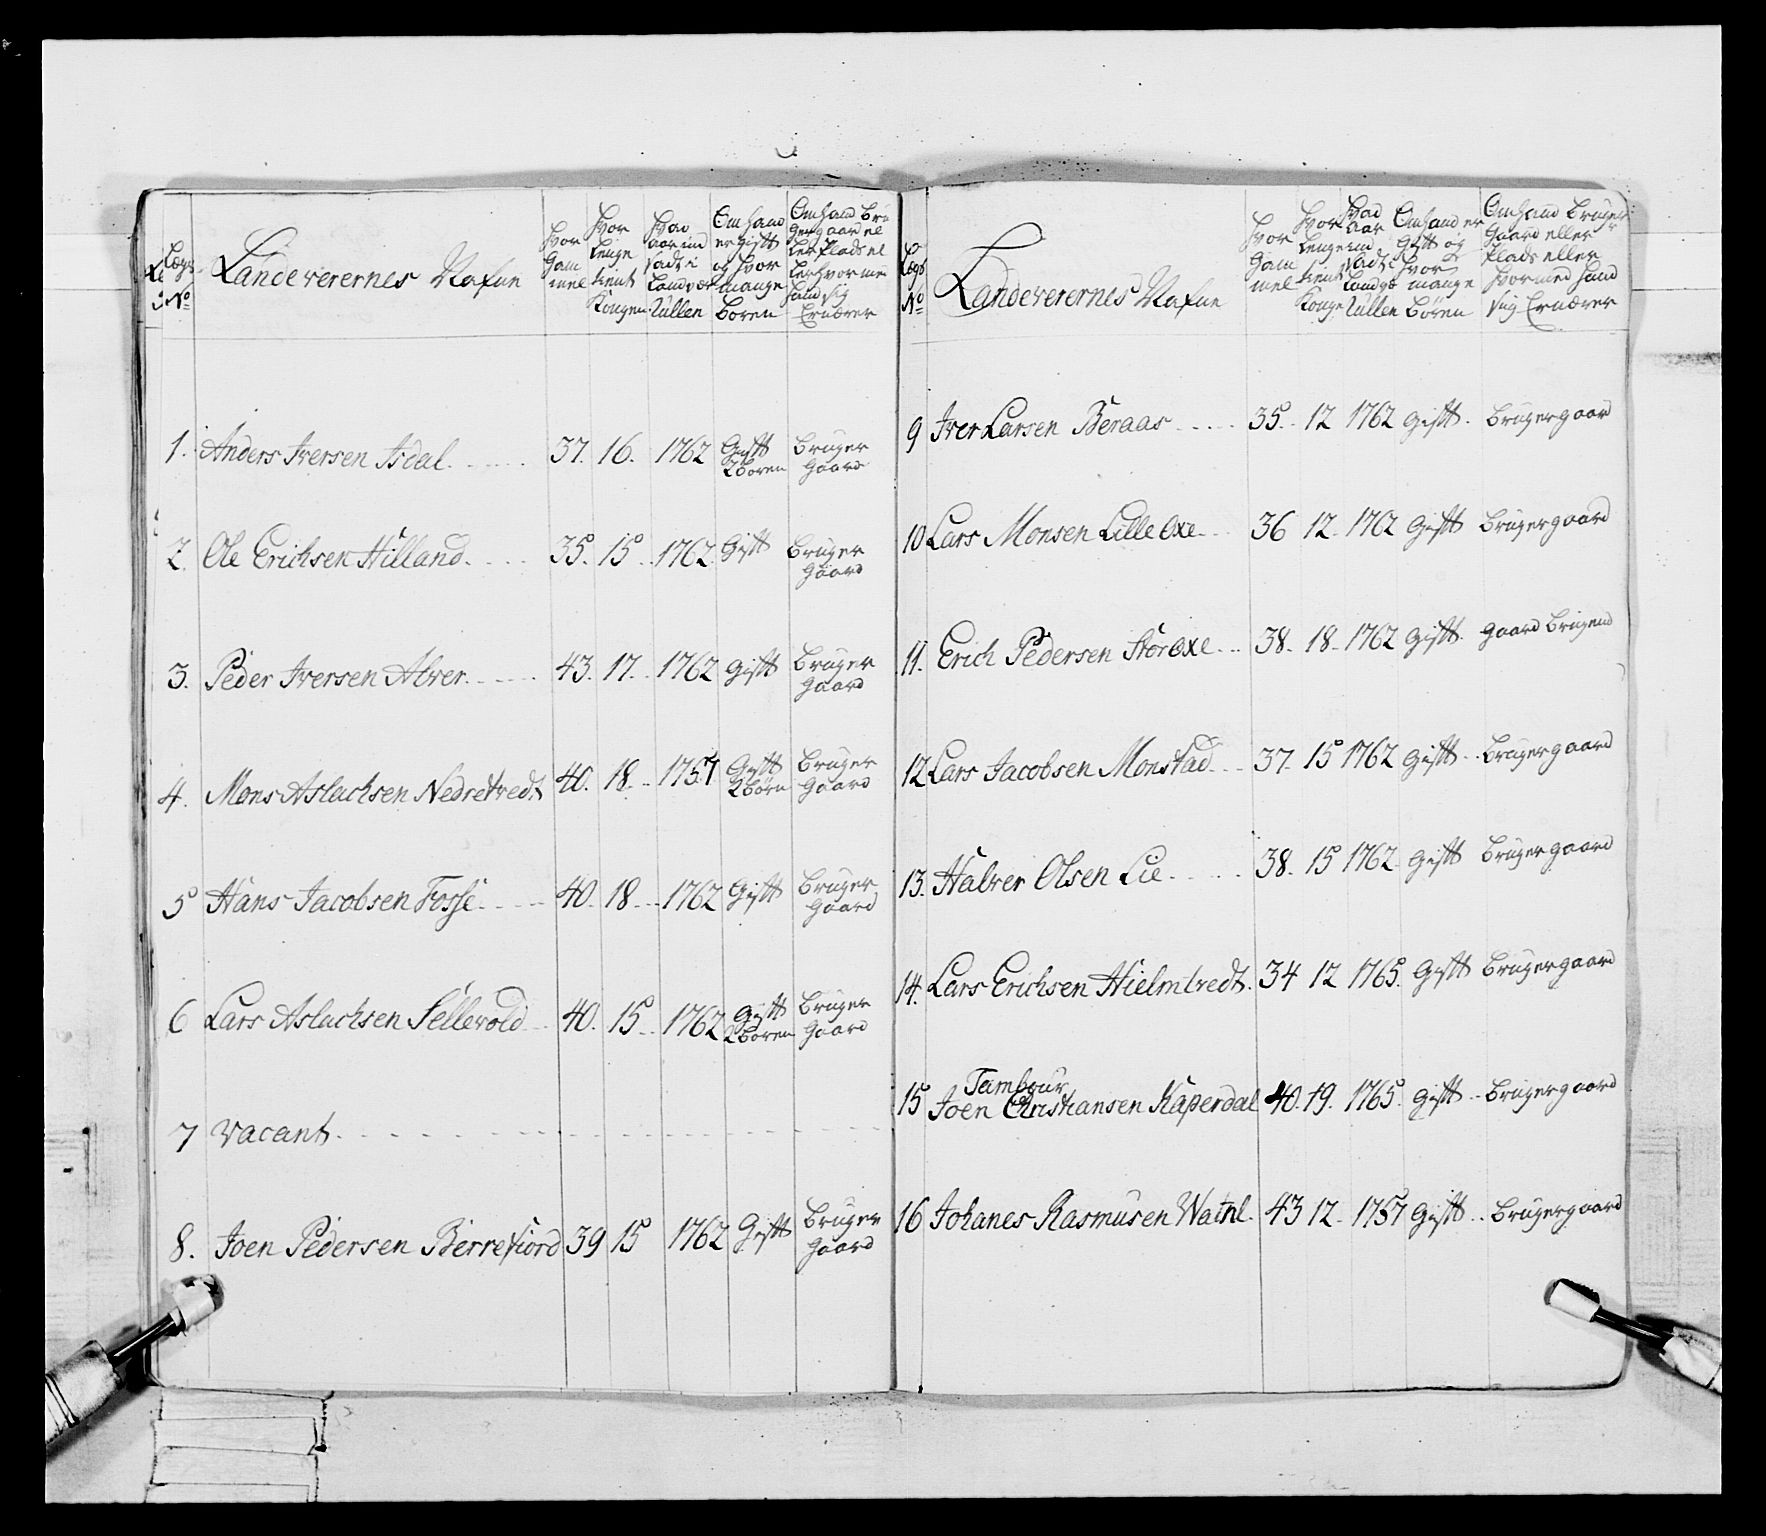 Lægs No
Landeverernes Nafne
Hvor Gam mel
Hvor lenge tient Kongen
Hvad aar ind sadt i Landvær Rullen
Om Hand er gift og Hvor mange boren
Om Hand bru ger gaard el ler Plads el ler Hvor med Hand sig Ernærer
1. Anders Iversen Isdal 37. 16. 1762 Gift 2 boren bruger gaard
2. Ole Erichsen Hilland 35. 15 1762 Gift bruger gaard
3. Peder Iversen Alver 43. 17. 1762 Gift bruger gaard
4. Mons Aslachsen Nedretvedt 40. 18 1757 Gift 2 børn bruger gaard
5 Hans Jacobsen Fosse 40. 18 1762 Gift bruger gaard
6 Lars Aslachsen Sellevold 40. 15 1762 Gift 2 boren bruger gaard
7 Vacant
8. Joen Pedersen Berrefiord 39 15 1762 Gift bruger gaard
Lægs No
Landeverernes Nafne
Hvor Gam mel
Hvor lenge tient Konge
Hvad aar ind sadt i Landvæ Rullen
Om Hand er Gift og Hvor mange børen
Om Hand bruger Gaard eller Plads eller Hvormed Hand sig Ernærer
9 Iver Larsen Beraas 35. 12 1762 Gift bruger gaard
10 Lars Monsen Lille Oxe 36 12 1762 Gift bruger gaard
11. Erich Pedersen Stor Oxe 38. 18 1762 Gift gaard brugend
12 Lars Jacobsen Monstad 37. 15 1762 Gift bruger gaard
13. Halver Olsen Lie 38. 15 1762 Gift bruger gaard
14. Lars Erichsen Hielmtvedt. 34 12 1765. Gift bruger gaard
Tambour
15 Joen Christiansen Kaperdal 40. 19. 1765. Gift bruger gaard
16 Johanes Rasmusen Watnl. 43 12 1757 Gift bruger gaard